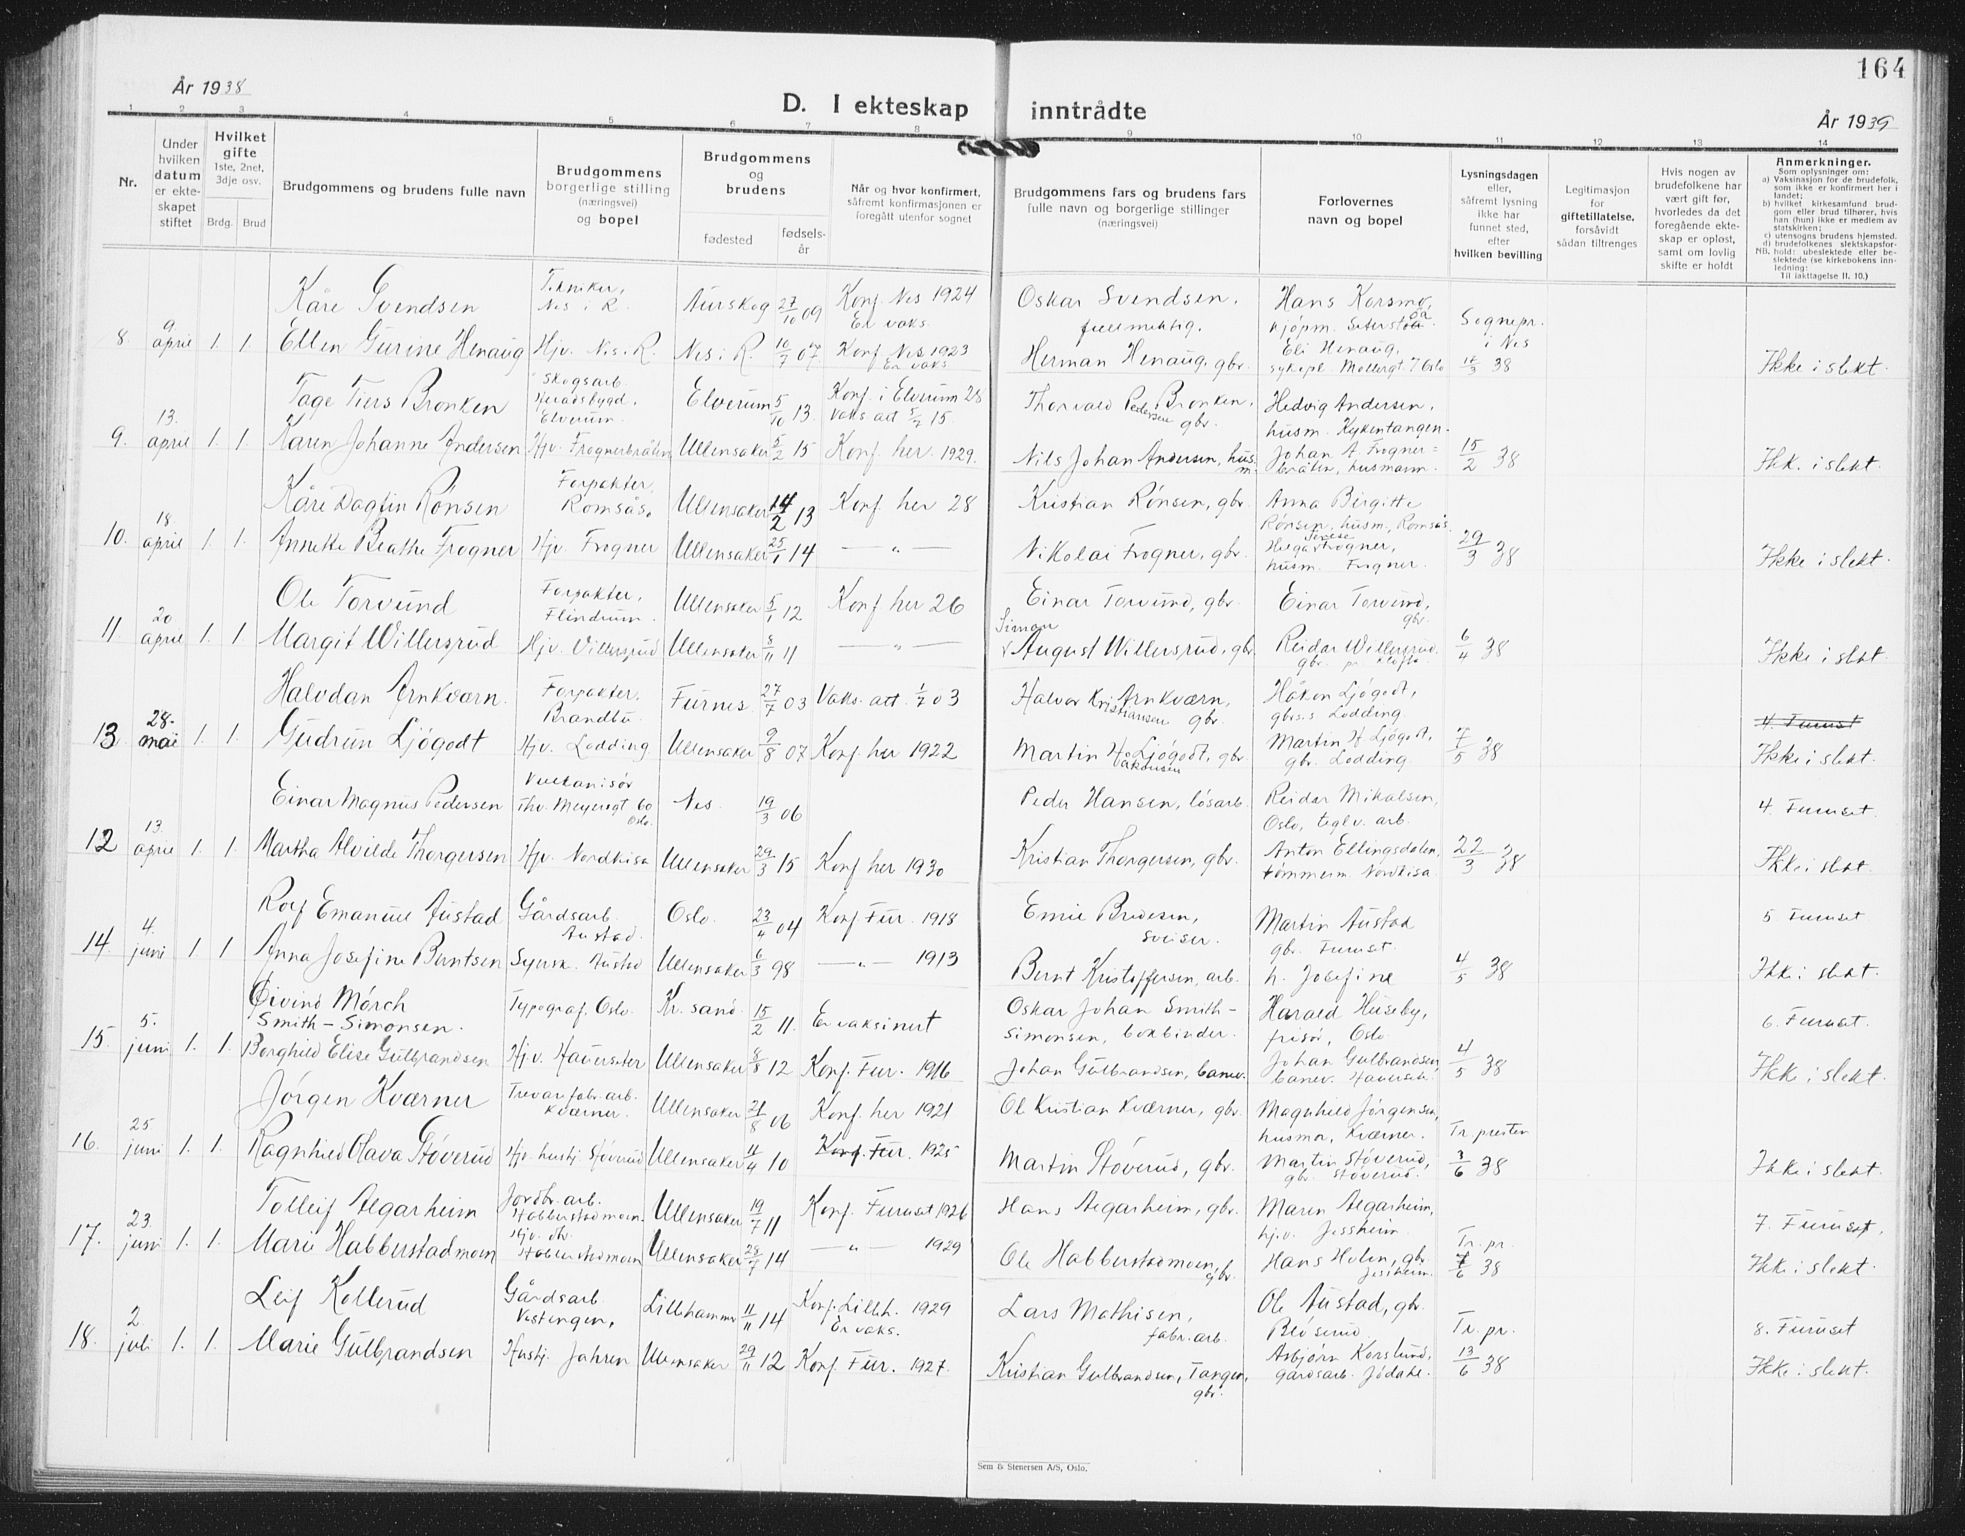 164
År 1938
D. I ekteskap inntrådte
År 1939
1 2 3 4 5 6 7 8 9 10 11 12 13 14
Nr.
Under hvilken datum er ekteskapet stiftet
Hvilket gifte 1ste, 2net, 3dje osv.
Brdg. Brud
Brudgommens og brudens fulle navn
Brudgommens borgerlige stilling (næringsvei) og bopel
Brudgommens og brudens
fødested
fødselsår
Når og hvor konfirmert, såfremt konfirmasjonen er foregått utenfor sognet
Brudgommens fars og brudens fars fulle navn og borgerlige stillinger (næringsvei)
Forlovernes navn og bopel
Lysningsdagen eller, såfremt lysning ikke har funnet sted, efter hvilken bevilling
Legitimasjon for giftetillatelse, forsåvidt sådan tiltrenges
Hvis nogen av brudefolkene har vært gift før, hvorledes da det foregående ekteskap er opløst, samt om lovlig skifte er holdt
Anmerkninger.
Som oplysninger om:
a) Vaksinasjon for de brudefolk, som ikke er konfirmert her i landet;
b) hvilket kirkesamfund brudgom eller brud tilhører, hvis han (hun) ikke er medlem av statskirken;
c) utensogns brudens hjemsted.
d) brudefolkenes slektskapsforhold: ubeslektede eller beslektede (se kirkebokens innledning:
NB. Til iakttagelse II. 10.)
Kåre Svendsen Tekniker, Nes i R. Aurskog 27/10 09 Konf. Nes 1924 Er vaks. Oskar Svendsen, fullmektig. Hans Korsmo, kjøpm. Seterstøa. Sognepr. i Nes
8. 9 april 1. 1. Ellen Gurine Henaug Hjv. Nes i R. Nes i R. 10/7 07 Konf. Nes 1923 Er vaks. Herman Henaug, gbr. Eli Henaug, sykepl. Møllergt. 7 Oslo 12/3 38 Ikke i slekt.
Tage Tiers Bronken Skogsarb. Heradsbygd, Elverum Elverum 5/10 13. Konf. i Elverum 28 vaks att 5/2 15. Thorvald Pedersen Bronken, gbr. Hedvig Andersen, husm. Kykentangen.
9. 13. april 1. 1. Karen Johanne Andersen Hjv. Frognerbråten Ullensaker 5/2 15 Konf. her. 1929. Nils Johan Andersen, husm. Johan A. Frognerbråten, husmann. 15/2 38 Ikk. i slekt.
Kåre Dagfin Rønsen Forpakter, Romsås. Ullensaker 14/2 13 Konf her 28 Kristian Rønsen, gbr. Anna Birgitte Rønsen, husm, Romsås.
10. 18. april 1. 1. Annette Beathe Frogner Hjv. Frogner Ullensaker 25/1 14 — " — Nikolai Frogner, gbr. Frogner, husm. Frogner. 29/3 38 Ikke i slekt.
Ole Torvund Forpakter, Flindrum. Ullensaker 5/1 12 Konf her 26 Einar Torvund, gbr. Einar Torvund, gbr.
11 20 april 1. 1. Margit Willersrud Hjv. Villersrud Ullensaker 8/11 11 — " — Simon August Willersrud, gbr. Reidar Willersrud. gbr. pr Kløfta 6/4 38 Ikke i slekt.
Halvdan Arnkværn. Forpakter, Brandbu. Furnes. 27/7 03 Vaks. att. 1/7 03 Halvor Kristiansen Arnkværn, gbr. Håkon Ljøgodt, gbr.s Lodding. 4. Furuset
13 28. mai 1. 1. Gudrun Ljøgodt Hjv. Lodding Ullensaker 9/8 07 Konf. her 1922 Martin Håkonsen Ljøgodt, gbr Martin H Ljøgodt, gbr. Lodding. 7/5 38 Ikke i slekt.
Einar Magnus Pedersen Vulkanisør Thv. Meyersgt 60 Oslo. Nes. 19/3 06 Peder Hansen, løsarb. Reidar Mikalsen, Oslo, teglv. arb. 4. Furuset
12 13. april 1. 1. Martha Alvilde Thorgersen Hjv. Nordkisa Ullensaker 29/3 15 Konf her 1930 Kristian Thorgersen, gbr. Anton Ellingsdalen, tømmerm Nordkisa 22/3 38 Ikke i slekt.
Rolf Emanuel Austad Gårdsarb. Austad. Oslo. 23/4 04 Konf. Fur. 1918 Emil Bredesen, sveiser. Martin Austad gbr. Furuset. 5 Furuset
14. 4. juni 1. 1 Anna Josefine Berntsen Syersk. Austad Ullensaker 6/3 98 — " — 1913 Bernt Kristoffersen, arb. h. Josefine 4/5 38 Ikk i slekt.
Øivind Mørch Smith-Simonsen. Typograf, Oslo. Kr. sand. 15/2 11. Er vaksinert Oskar Johan Smith-Simonsen, bokbinder. Harald Huseby, frisør, Oslo 6. Furuset.
15. 5. juni 1. 1. Borghild Elise Gulbrandsen Hjv. Hauerseter Ullensaker 8/8 12 Konf. Fur. 1916 Johan Gulbrandsen, banev. Johan Gulbrandsen, banev. Hauerset. 4/5 38 Ikke i slekt.
Jørgen Kværner Trevarefabr. arb. Kværner. Ullensaker 21/8 06 Konf. her 1921 Ole Kristian Kværner, gbr. Magnhild Jørgensen, husmor, Kværner. Tr presten
16. 25 juni 1. 1. Ragnhild Olava Støverud Hjv. hushj. Støverud Ullensaker 11/4 10 Konf. Fur. 1925 Martin Støverud, gbr. Martin Støverud, gbr. Støverud. 3/6 38 Ikke i slekt.
Tolleif Algarheim Jordbr. arb. Habberstadmoen. Ullensaker 19/7 11 Konf. Furuset 1926 Hans Algarheim, gbr. Maren Algarheim, hj.v. Jessheim. 7. Furuset.
17. 23. juni 1. 1. Marie Habberstadmoen Hjv. Habberstadmoen Ullensaker 28/7 14 — " — 1929 Ole Habberstadmoen, gbr. Hans Holen, gbr. Jessheim. Tr. pr. 7/6 38 Ikke i slekt.
Leif Kollerud Gårdsarb. Vestengen, Lillehammer 11/11 14 Konf. Lilleh. 1929 Er vaks. Lars Mathisen, fabr. arb. Ole Austad, gbr. Bløserud. Tr. pr. 8. Furuset
18. 2 juli 1. 1. Marie Gulbrandsen Hushj. Jahren Ullensaker 29/11 12 Konf. Fur. 1927. Kristian Gulbrandsen, Tangen, gbr. Asbjørn Korslund, gårdsarb. Jødahl. 13/6 38 Ikke i slekt.
Sem & Stenersen A/S, Oslo.